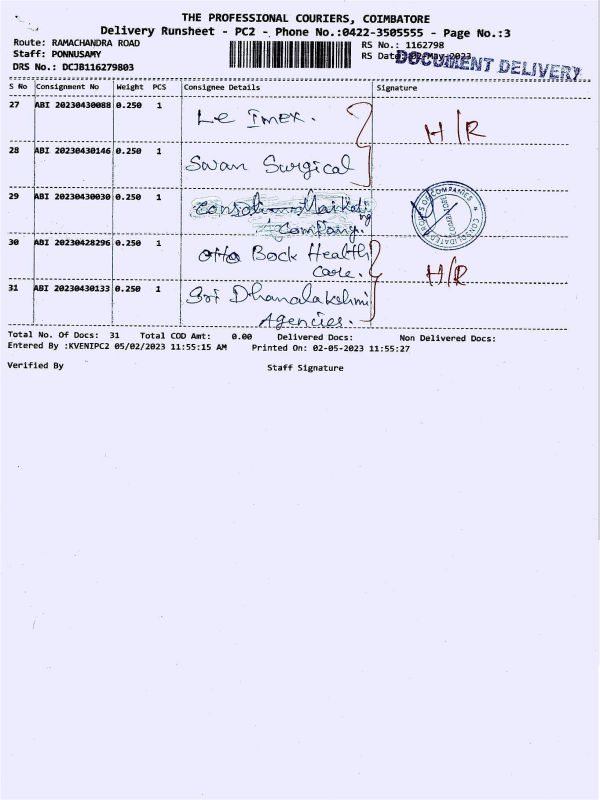 THE PROFESSIONAL COURIERS, COIMBATORE
Delivery Runsheet - PC2 - Phone No.:0422-3505555 - Page No.:3
Route: RAMACHANDRA ROAD
RS No.: 1162798
Staff: PONNUSAMY
RS Date: 02-May-2023
DOCUMENT DELIVERY
DRS No.: DCJB116279803
S No Consignment No Weight PCS Consignee Details Signature
27 ABI 20230430088 0.250 1 Le Imex. H/R
28 ABI 20230430146 0.250 1 Swan Surgical
29 ABI 20230430030 0.250 1 Consolidated Marketing
Company.
30 ABI 20230428296 0.250 1 Otto Bock Health
Care. H/R
31 ABI 20230430133 0.250 1 Sri Dhanalakshmi
Agencies.
Total No. Of Docs: 31 Total COD Amt: 0.00 Delivered Docs: Non Delivered Docs:
Entered By :KVENIPC2 05/02/2023 11:55:15 AM Printed On: 02-05-2023 11:55:27
Verified By Staff Signature